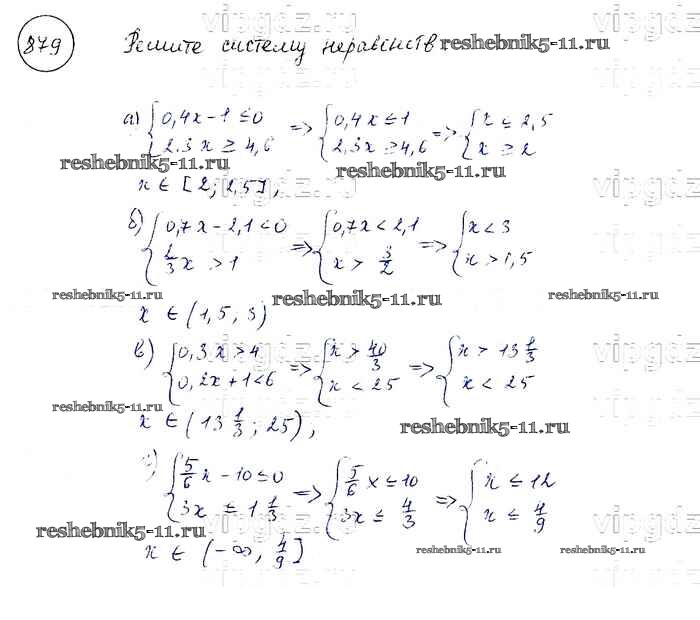 879 Решите систему неравенств reshebnik5-11.ru
а) { 0,4x - 1 ≤ 0 => { 0,4x ≤ 1 => { x ≤ 2,5
2,3x ≥ 4,6 2,3x ≥ 4,6 x ≥ 2
reshebnik5-11.ru reshebnik5-11.ru
x ∈ [2; 2,5],
б) { 0,7x - 2,1 < 0 => { 0,7x < 2,1 => { x < 3
2/3 x > 1 x > 3/2 x > 1,5
reshebnik5-11.ru reshebnik5-11.ru reshebnik5-11.ru
x ∈ (1,5, 3)
в) { 0,3x > 4 => { x > 40/3 => { x > 13 1/3
0,2x + 1 < 6 x < 25 x < 25
reshebnik5-11.ru
x ∈ (13 1/3; 25), reshebnik5-11.ru
г) { 5/6 x - 10 ≤ 0 => { 5/6 x ≤ 10 => { x ≤ 12
3x ≤ 1 1/3 3x ≤ 4/3 x ≤ 4/9
reshebnik5-11.ru
x ∈ (-∞, 4/9] reshebnik5-11.ru reshebnik5-11.ru